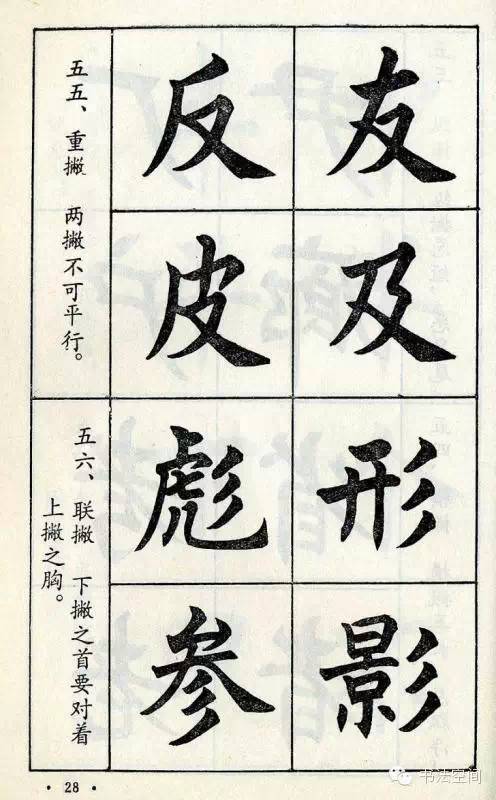 友反
及皮
五五、重撇 两撇不可平行。
形彪
影参
五六、联撇 下撇之首要对着
上撇之胸。
·28·
书法空间